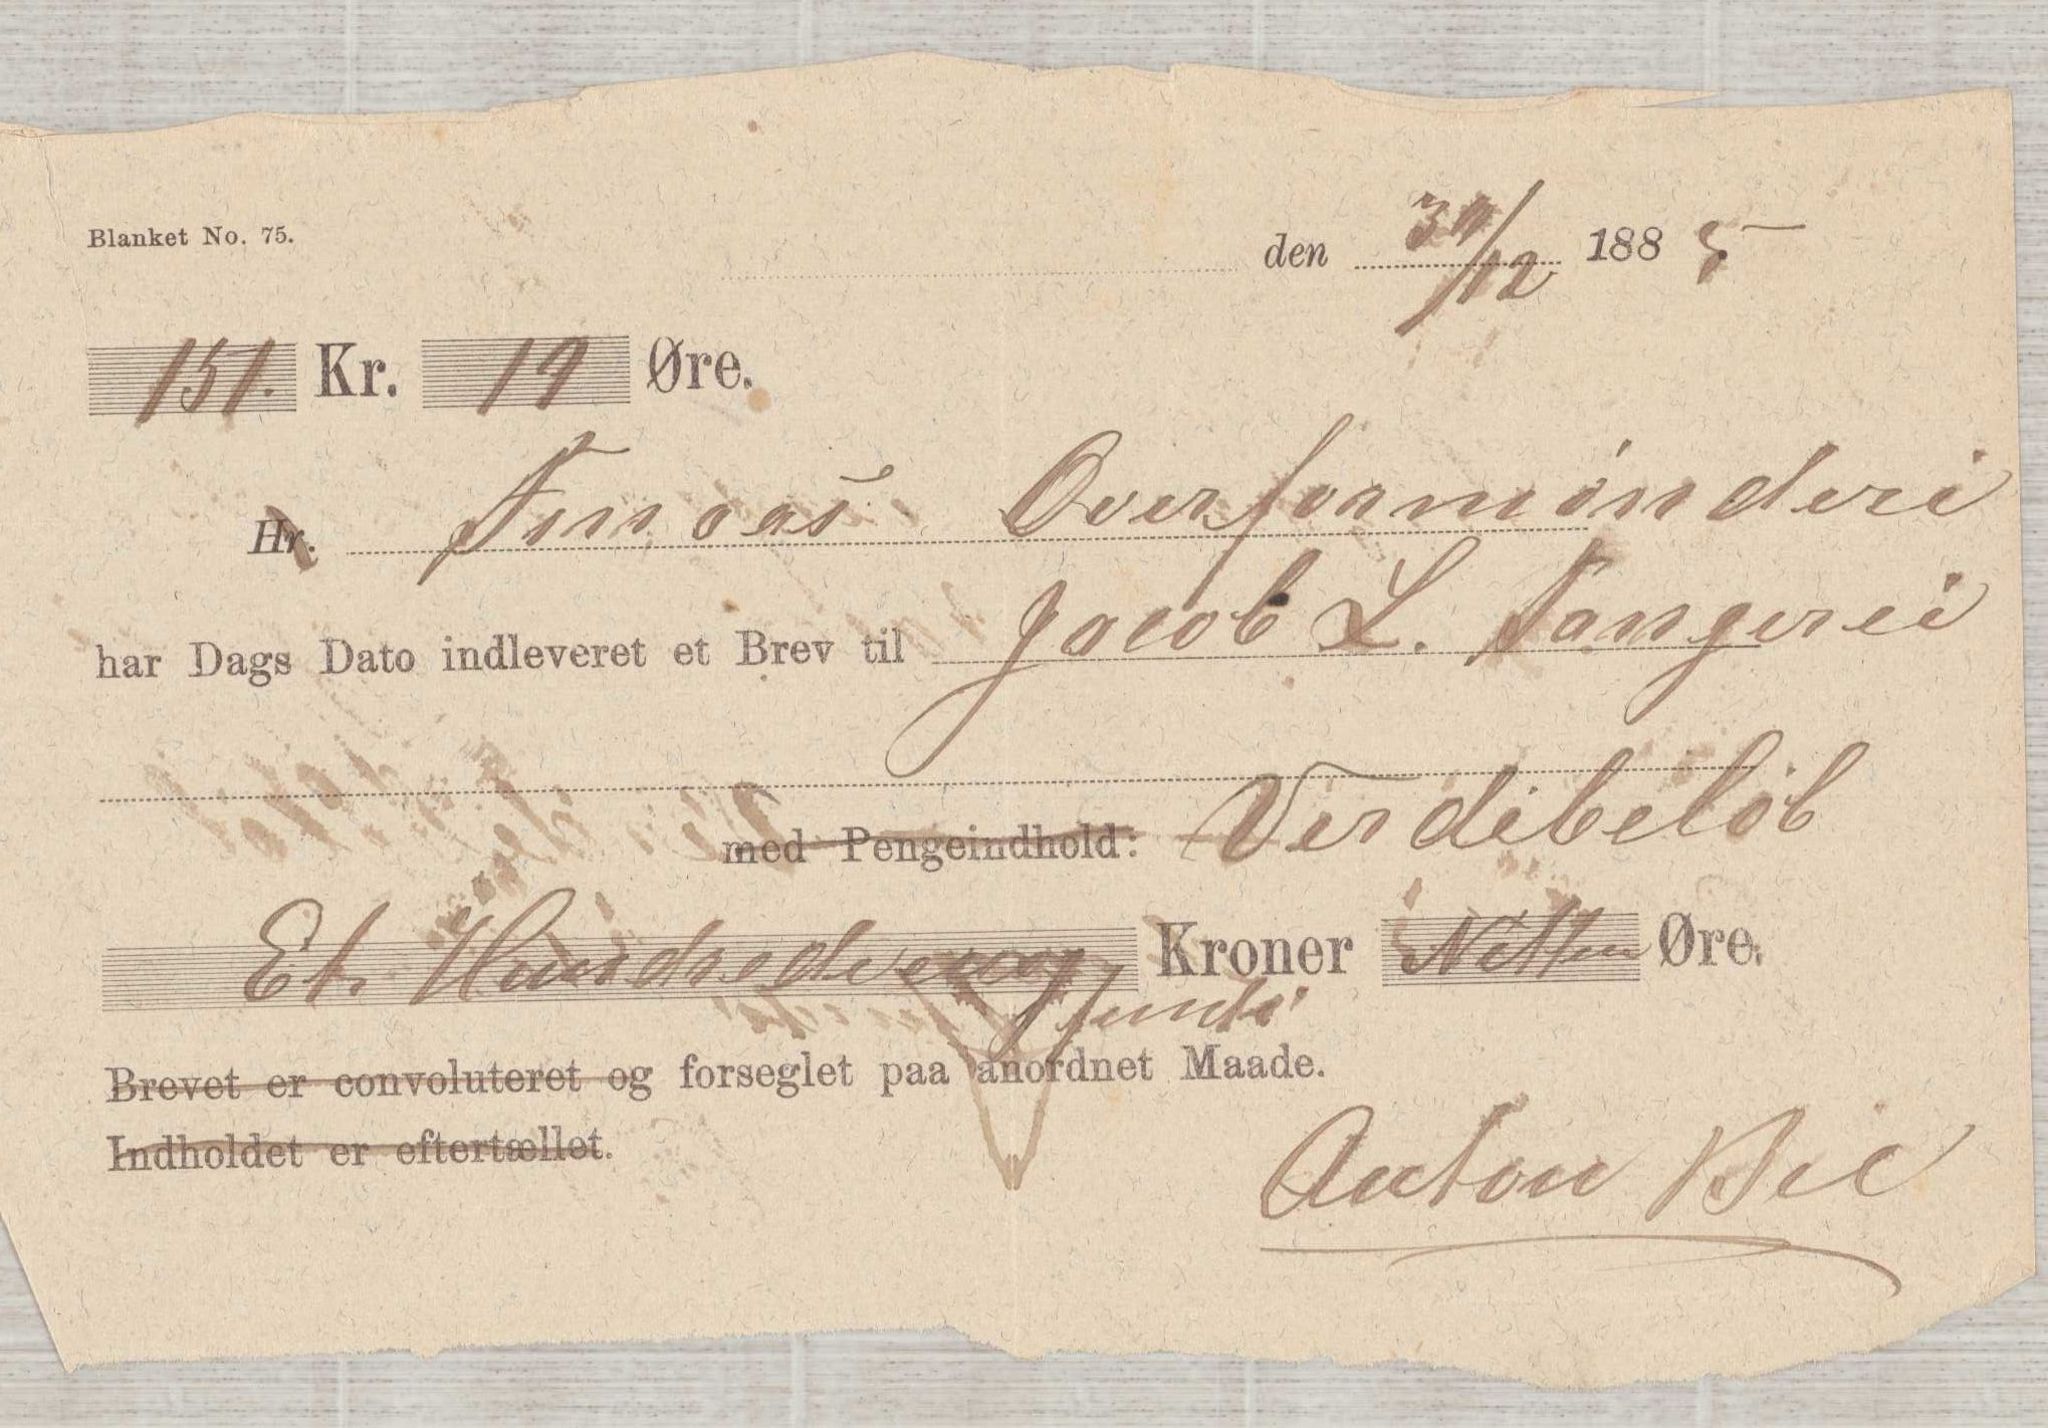 Blanket No. 75.
den 30/12 1885
151. Kr. 19 Øre.
Hr. Finnaas Overformynderi
har Dags Dato indleveret et Brev til Jacob L.
med Pengeindhold: Verdibeløb
Et Hundrede og femti Kroner Nitten Øre.
Brevet er convoluteret og forseglet paa anordnet Maade.
Indholdet er eftertællet.
Anton Bie